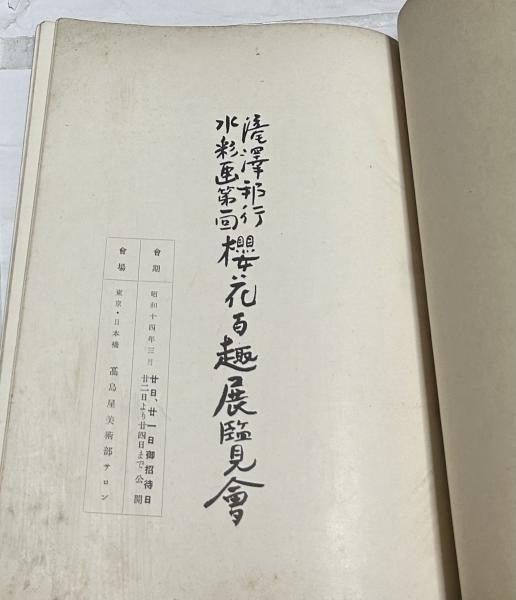 滝澤邦行
水彩画第一回
櫻花百趣展覽會
會期
昭和十四年三月
廿日、廿一日御招待日
廿二日より廿四日まで公開
會場
東京・日本橋 髙島屋美術部サロン